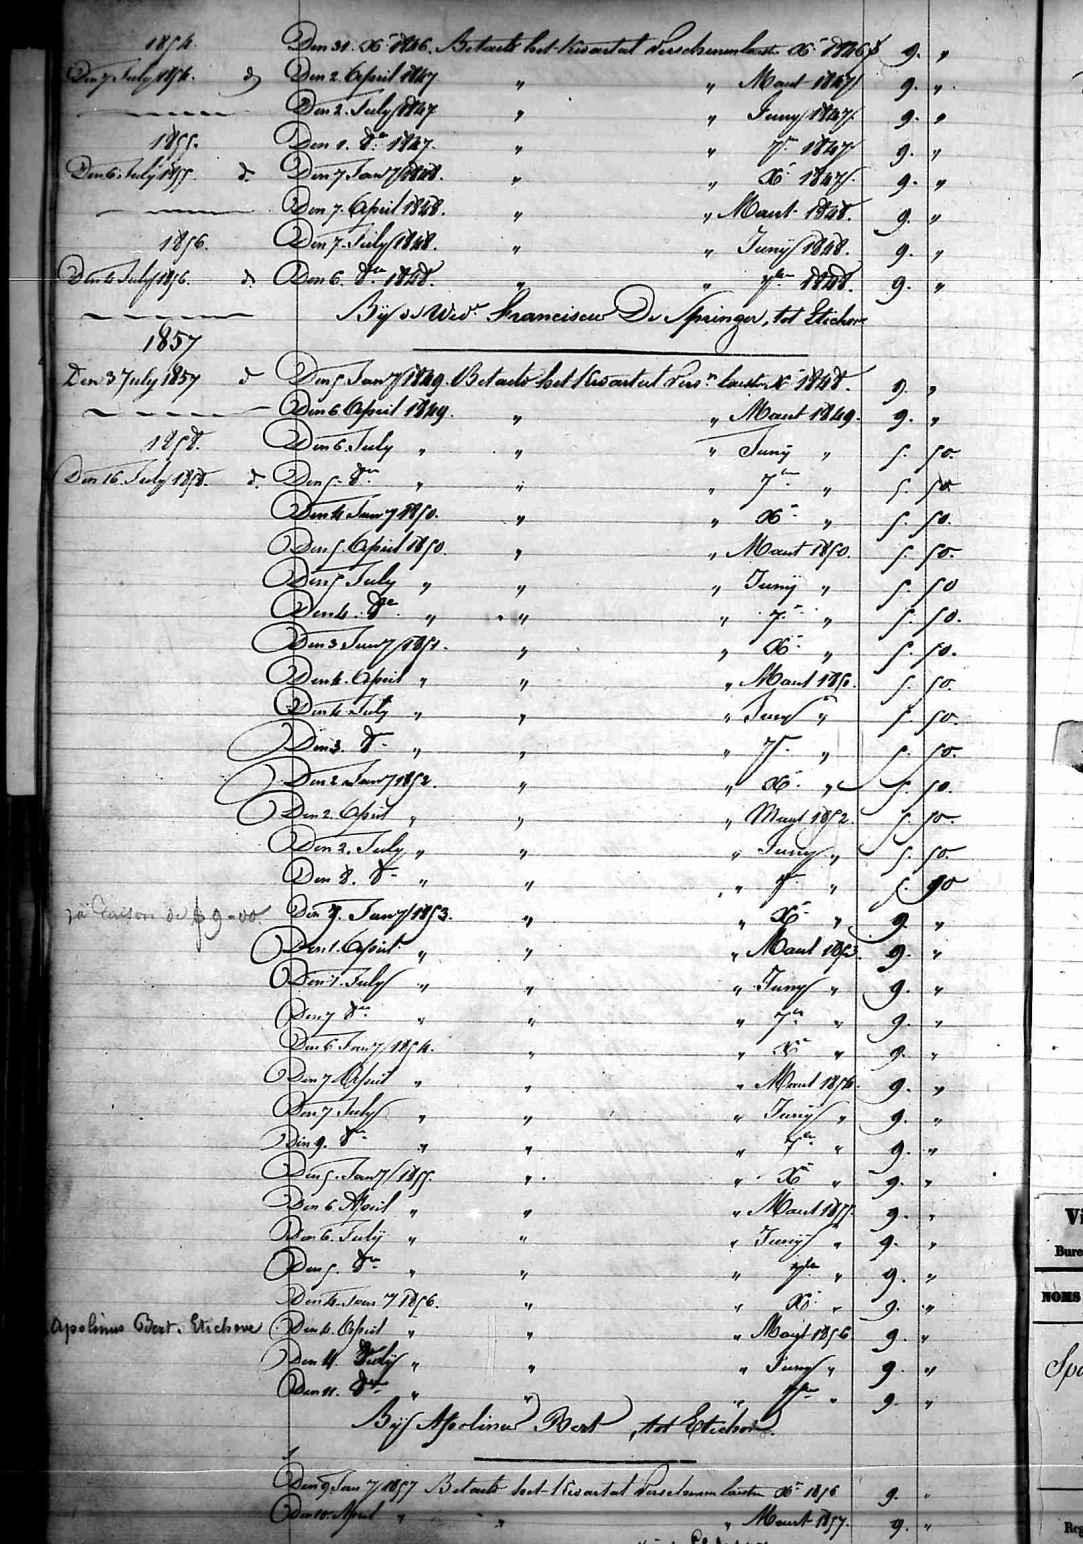 1854. Den 31. Xr 1846. Betaelt het Kwartat verschenen laatst. Xr 1846 9. "
Den 7 July 1854. d Den 2. April 1847 " " Maert 1847 9. "
Den 2. July 1847 " " Juny 1847. 9. "
1855. Den 1. 8re 1847. " " 7r 1847 9. "
Den 6 July 1855. d. Den 7 Janry 1848. " " Xr 1847. 9. "
Den 7. April 1848. " " Maert 1848. 9. "
1856. Den 7. July 1848. " " Juny 1848. 9. "
Den 4 July 1856. d. Den 6. 8re 1848. " " 7bre 1848. 9. "
By de Wed. Francisens De Springer, tot Etichove
1857
Den 3 July 1857 d Den 5 Janry 1849 Betaelt het Kwartat vers.n laatst. Xr 1848. 9. "
Den 6 April 1849. " " Maert 1849. 9. "
1858. Den 6. July " " " Juny " 5. 50.
Den 16. July 1858. d. Den 5. 8re " " " 7re " 5. 50
Den 4 Janry 1850. " " Xr " 5. 50.
Den 5 April 1850. " " Maert 1850. 5. 50.
Den 5 July " " " Juny " 5. 50
Den 4. 8re " " " 7r " 5. 50.
Den 3 Janry 1851. " " Xr " 5. 50.
Den 4. April " " " Maert 1851. 5. 50.
Den 4 July " " " Juny " 5. 50.
Den 3. 8r " " " 7r " 5. 50.
Den 2 Janry 1852. " " Xr " 5. 50.
Den 2. April " " " Maert 1852. 5. 50.
Den 2. July " " " Juny " 5. 50.
Den 8. 8r " " " 7r " 5. 50
à raison de f 9-00 Den 7. Janry 1853. " " Xr " 9. "
Den 1. April " " " Maert 1853. 9. "
Den 1. July " " " Juny " 9. "
Den 7 8re " " " 7re " 9. "
Den 6 Janry 1854. " " Xr " 9. "
Den 7 April " " " Maert 1854. 9. "
Den 7 July " " " Juny " 9. "
Den 9. 8re " " " 7re " 9. "
Den 5. Janry 1855. " " Xr " 9. "
Den 6 April " " " Maert 1855. 9. "
Den 6. July " " " Juny " 9. "
Den 5. 8re " " " 7bre " 9. "
Den 4. Janry 1856. " " Xr " 9. "
Apolinus Bert. Etichove Den 4. April " " " Maert 1856 9. "
Den 4. July " " " Juny " 9. "
Den 11. 8re " " " 7re " 9. "
By Apolinus Bert, tot Etichove.
Den 9 Janry 1857 Betaelt het Kwartat verschenen laatst. Xr 1856 9. "
Den 10. April " " " Maert 1857. 9. "
Vi
Bure
NOMS
Spa
Reg